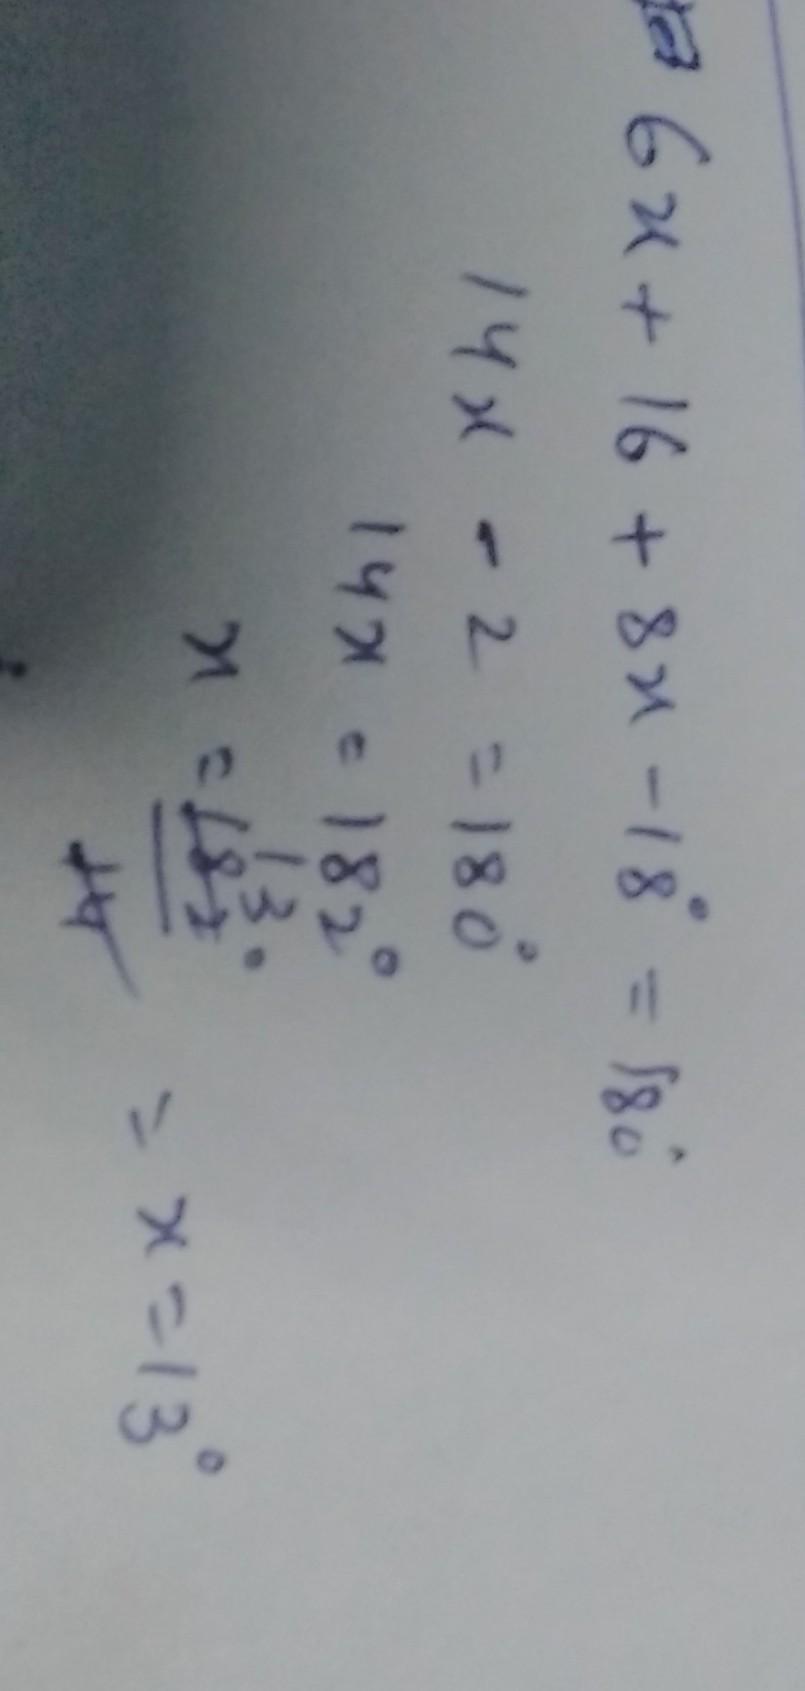 6x + 16 + 8x - 18° = 180°
14x - 2 = 180°
14x = 182°
13°
x = 182
14
= x = 13°